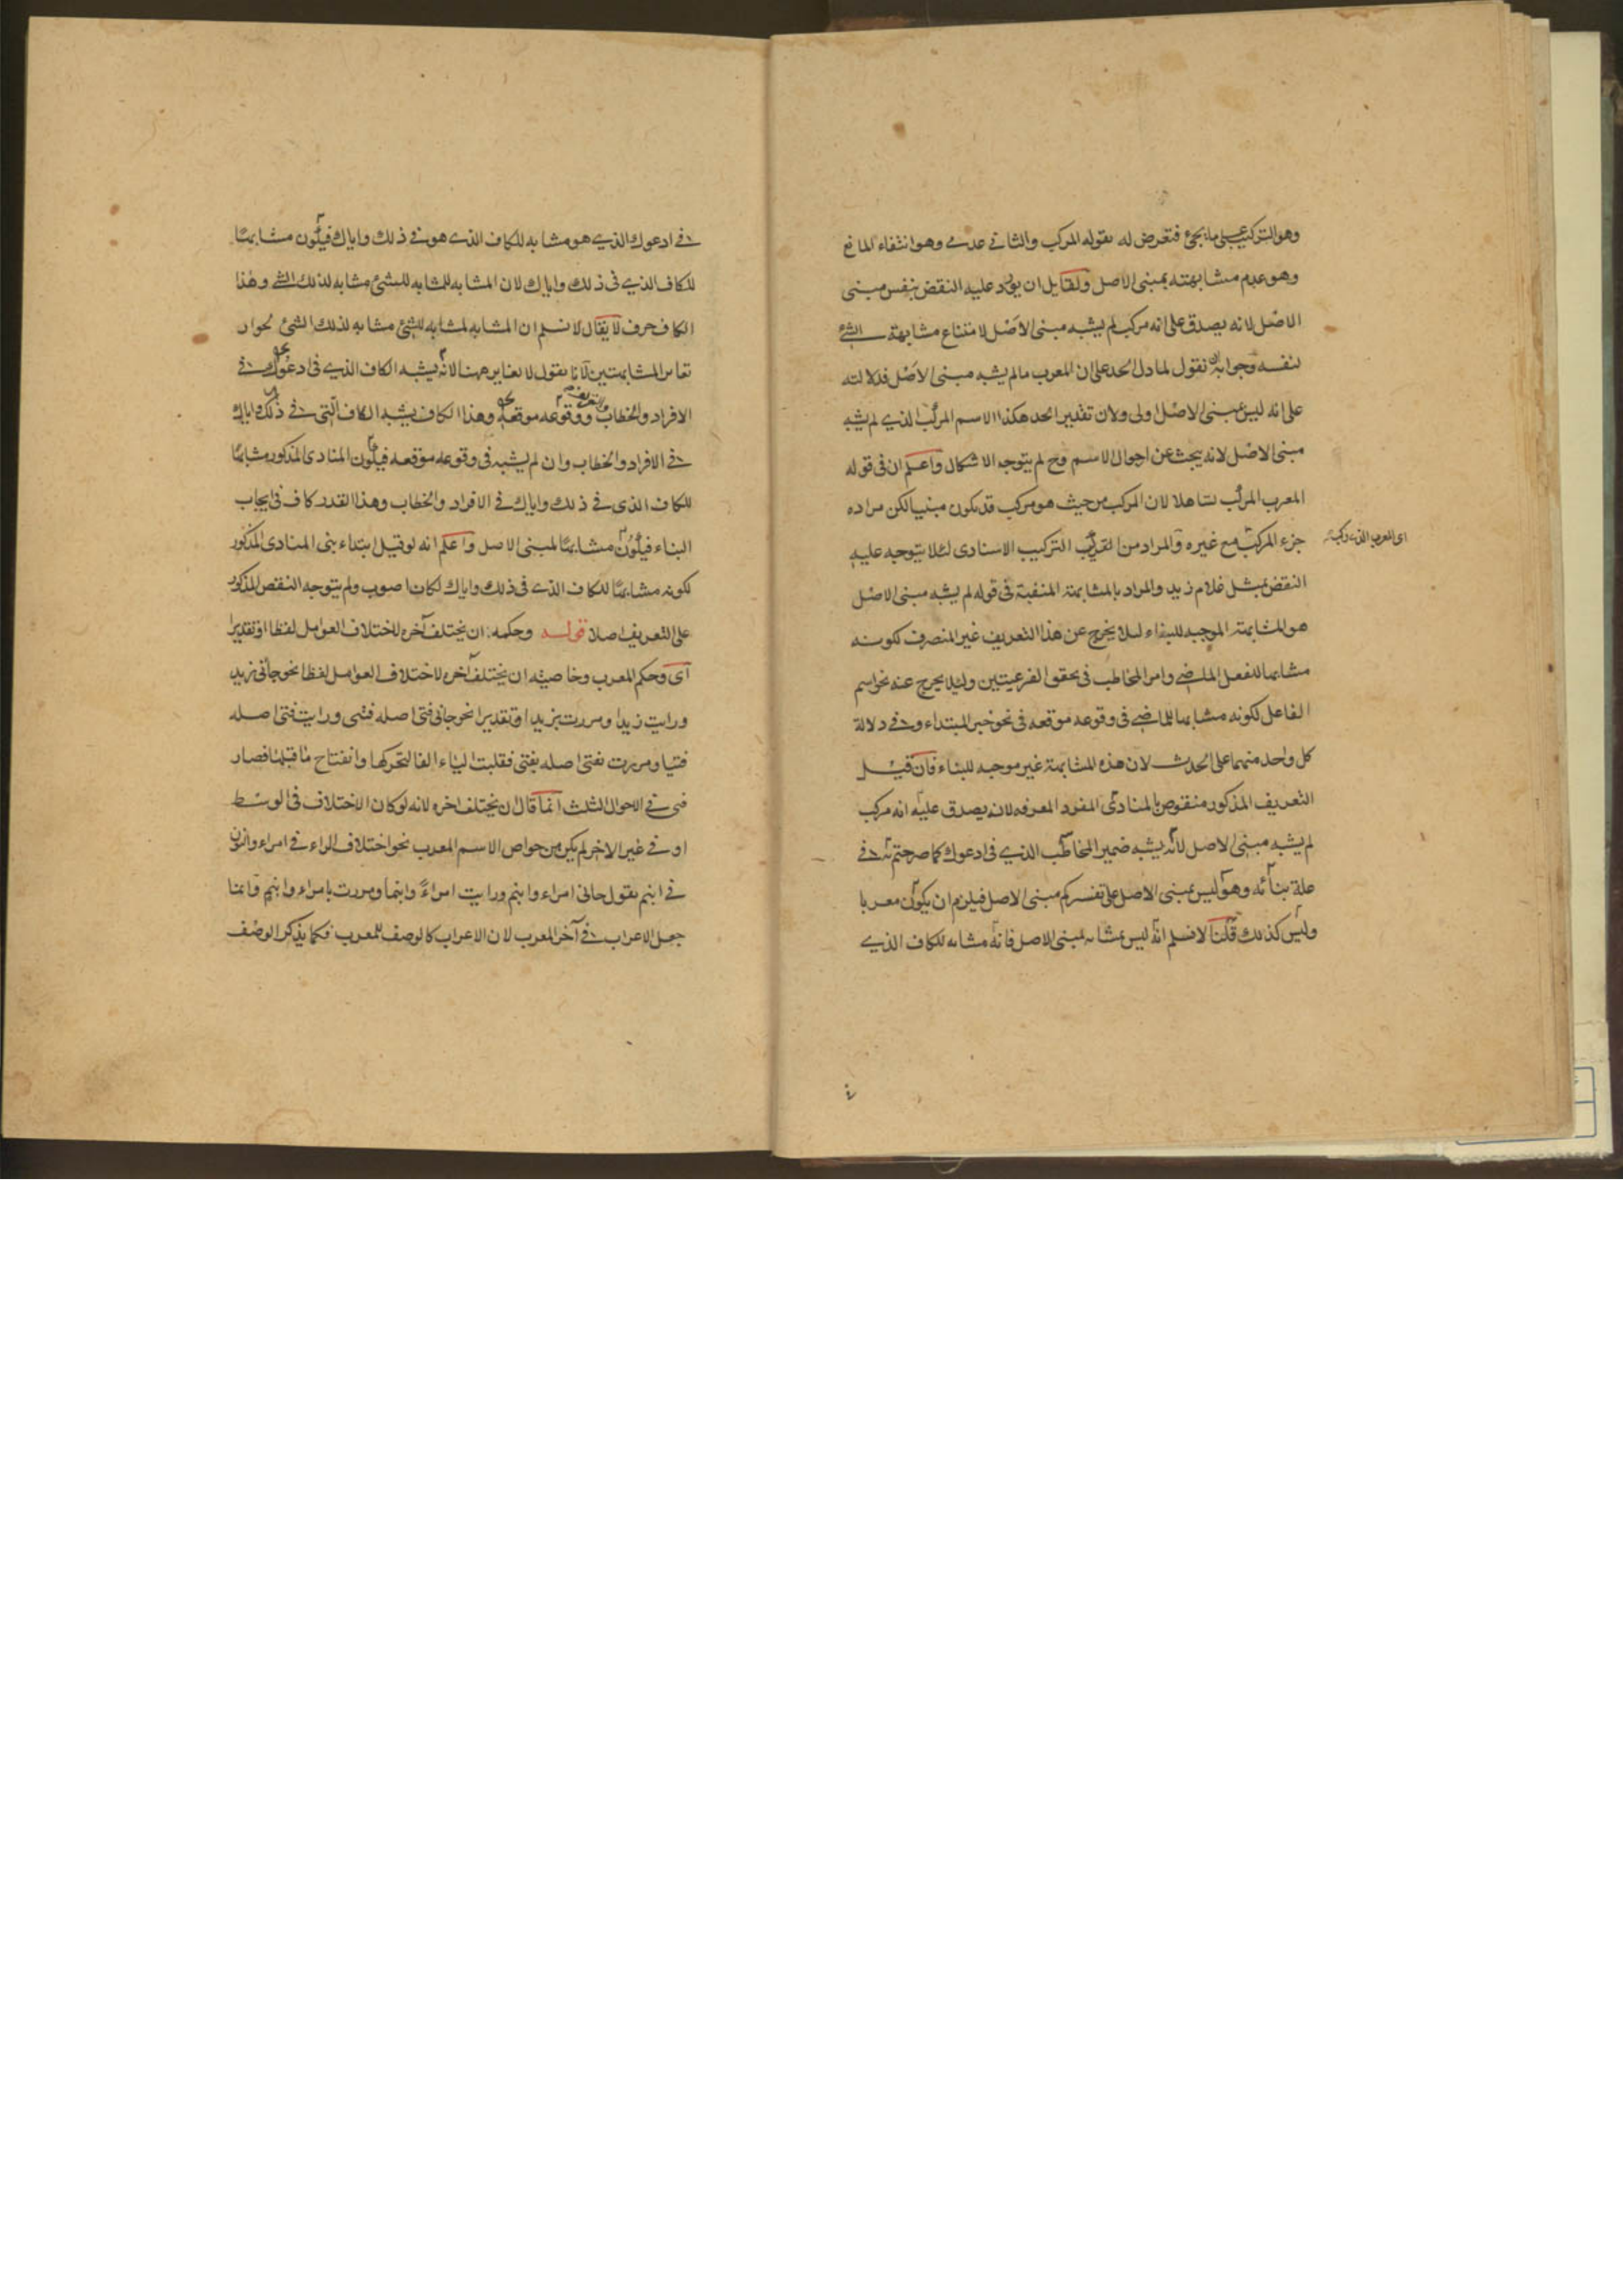 وهو التركيب على ما يجئ فتعرض له بقوله المركب والثاني عدمي وهو انتفاء المانع
وهو عدم مشابهته بمبنى الاصل ولقايل ان يورد عليه النقض بنفس مبنى
الاصل لانه يصدق على انه مركب لم يشبه مبنى الاصل لامتناع مشابهة الشئ
لنفسه وجوابه ان نقول لما دل الحد على ان المعرب مالم يشبه مبنى الاصل فدلالته
على انه ليس بمبنى الاصل اولى ولان تقدير الحد هكذا الاسم المركب الذي لم يشبه
مبنى الاصل لانه يبحث عن احوال الاسم وح لم يتوجه الاشكال واعلم ان في قوله
المعرب المركب تساهلا لان المركب من حيث هو مركب قد يكون مبنيا لكن مراده
جزء المركب مع غيره والمراد من التركيب الاسنادى لئلا يتوجه عليه
النقض بمثل غلام زيد والمراد بالمشابهة المنفية في قوله لم يشبه مبنى الاصل
هو المشابهة الموجبه للبناء لئلا يخرج عن هذا التعريف غير المنصرف لكونه
مشابها للفعل الماضي وامر المخاطب في تحقق الفرعيتين ولئلا يخرج عنه نحو اسم
الفاعل لكونه مشابها للماضي في وقوعه موقعه في نحو خبر المبتداء وفي دلالة
كل واحد منهما على الحدث لان هذه المشابهة غير موجبه للبناء فان قيل
التعريف المذكور منقوض بالمنادى المفرد المعرفه لانه يصدق عليه انه مركب
لم يشبه مبنى الاصل لانه يشبه ضمير المخاطب الذي في ادعوك كما صرحتم به في
علة بنائه وهو ليس بمبنى الاصل على تفسيركم مبنى الاصل فيلزم ان يكون معربا
وليس كذلك قلنا لا نسلم انه ليس بمشابه لمبنى الاصل فانه مشابه للكاف الذي
في ادعوك الذي هو مشابه للكاف الذي هو في ذلك واياك فيكون مشابها
للكاف الذي في ذلك واياك لان المشابه للمشابه للشئ مشابه لذلك الشئ وهذا
الكاف حرف لا يقال لا نسلم ان المشابه لمشابه للشئ مشابه لذلك الشئ لجواز
تغاير المشابهتين لانا نقول لا تغاير ههنا لانه يشبه الكاف الذي في ادعوك في
الافراد والخطاب ووقوعه موقعه وهذا الكاف يشبه الكاف التي في ذلك واياك
في الافراد والخطاب وان لم يشبه في وقوعه موقعه فيكون المنادى المذكور مشابها
للكاف الذي في ذلك واياك في الافراد والخطاب وهذا القدر كاف في ايجاب
البناء فيكون مشابها لمبنى الاصل واعلم انه لو قيل ابتداء بنى المنادى المذكور
لكونه مشابها للكاف الذي في ذلك واياك لكان اصوب ولم يتوجه النقض المذكور
على التعريف اصلا قوله وحكمه ان يختلف آخره لاختلاف العوامل لفظا او تقديرا
اى وحكم المعرب وخاصيته ان يختلف آخره لاختلاف العوامل لفظا نحو جاني زيد
ورايت زيدا ومررت بزيد او تقديرا نحو جاني فتى اصله فتى ورايت فتى اصله
فتيا ومررت بفتى اصله بفتى فقلبت الياء الفا لتحركها وانفتاح ما قبلها فصار
فتى في الاحوال الثلث انما قال ان يختلف اخره لانه لو كان الاختلاف في الوسط
او في غير الاخر لم يكن من خواص الاسم المعرب نحو اختلاف الراء في امراء والنون
في ابنم تقول جانى امراء وابنم ورايت امراءً وابنما ومررت بامراء وابنم وانما
جعل الاعراب في آخر المعرب لان الاعراب كالوصف للمعرب فكما يذكر الوصف